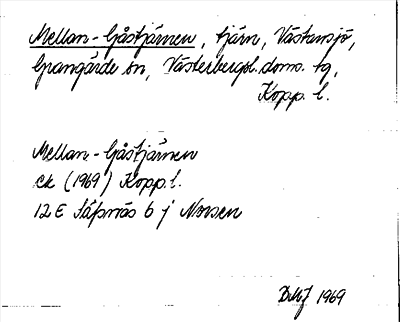 Mellan-Gåstjärnen, tjärn, Västansjö,
Grangärde sn, Västerbergsl. doms. tg,
Kopp. l.
Mellan-Gåstjärnen
ek (1969) Kopp. l.
12 E Säfsnäs 6 j Norsen
1969